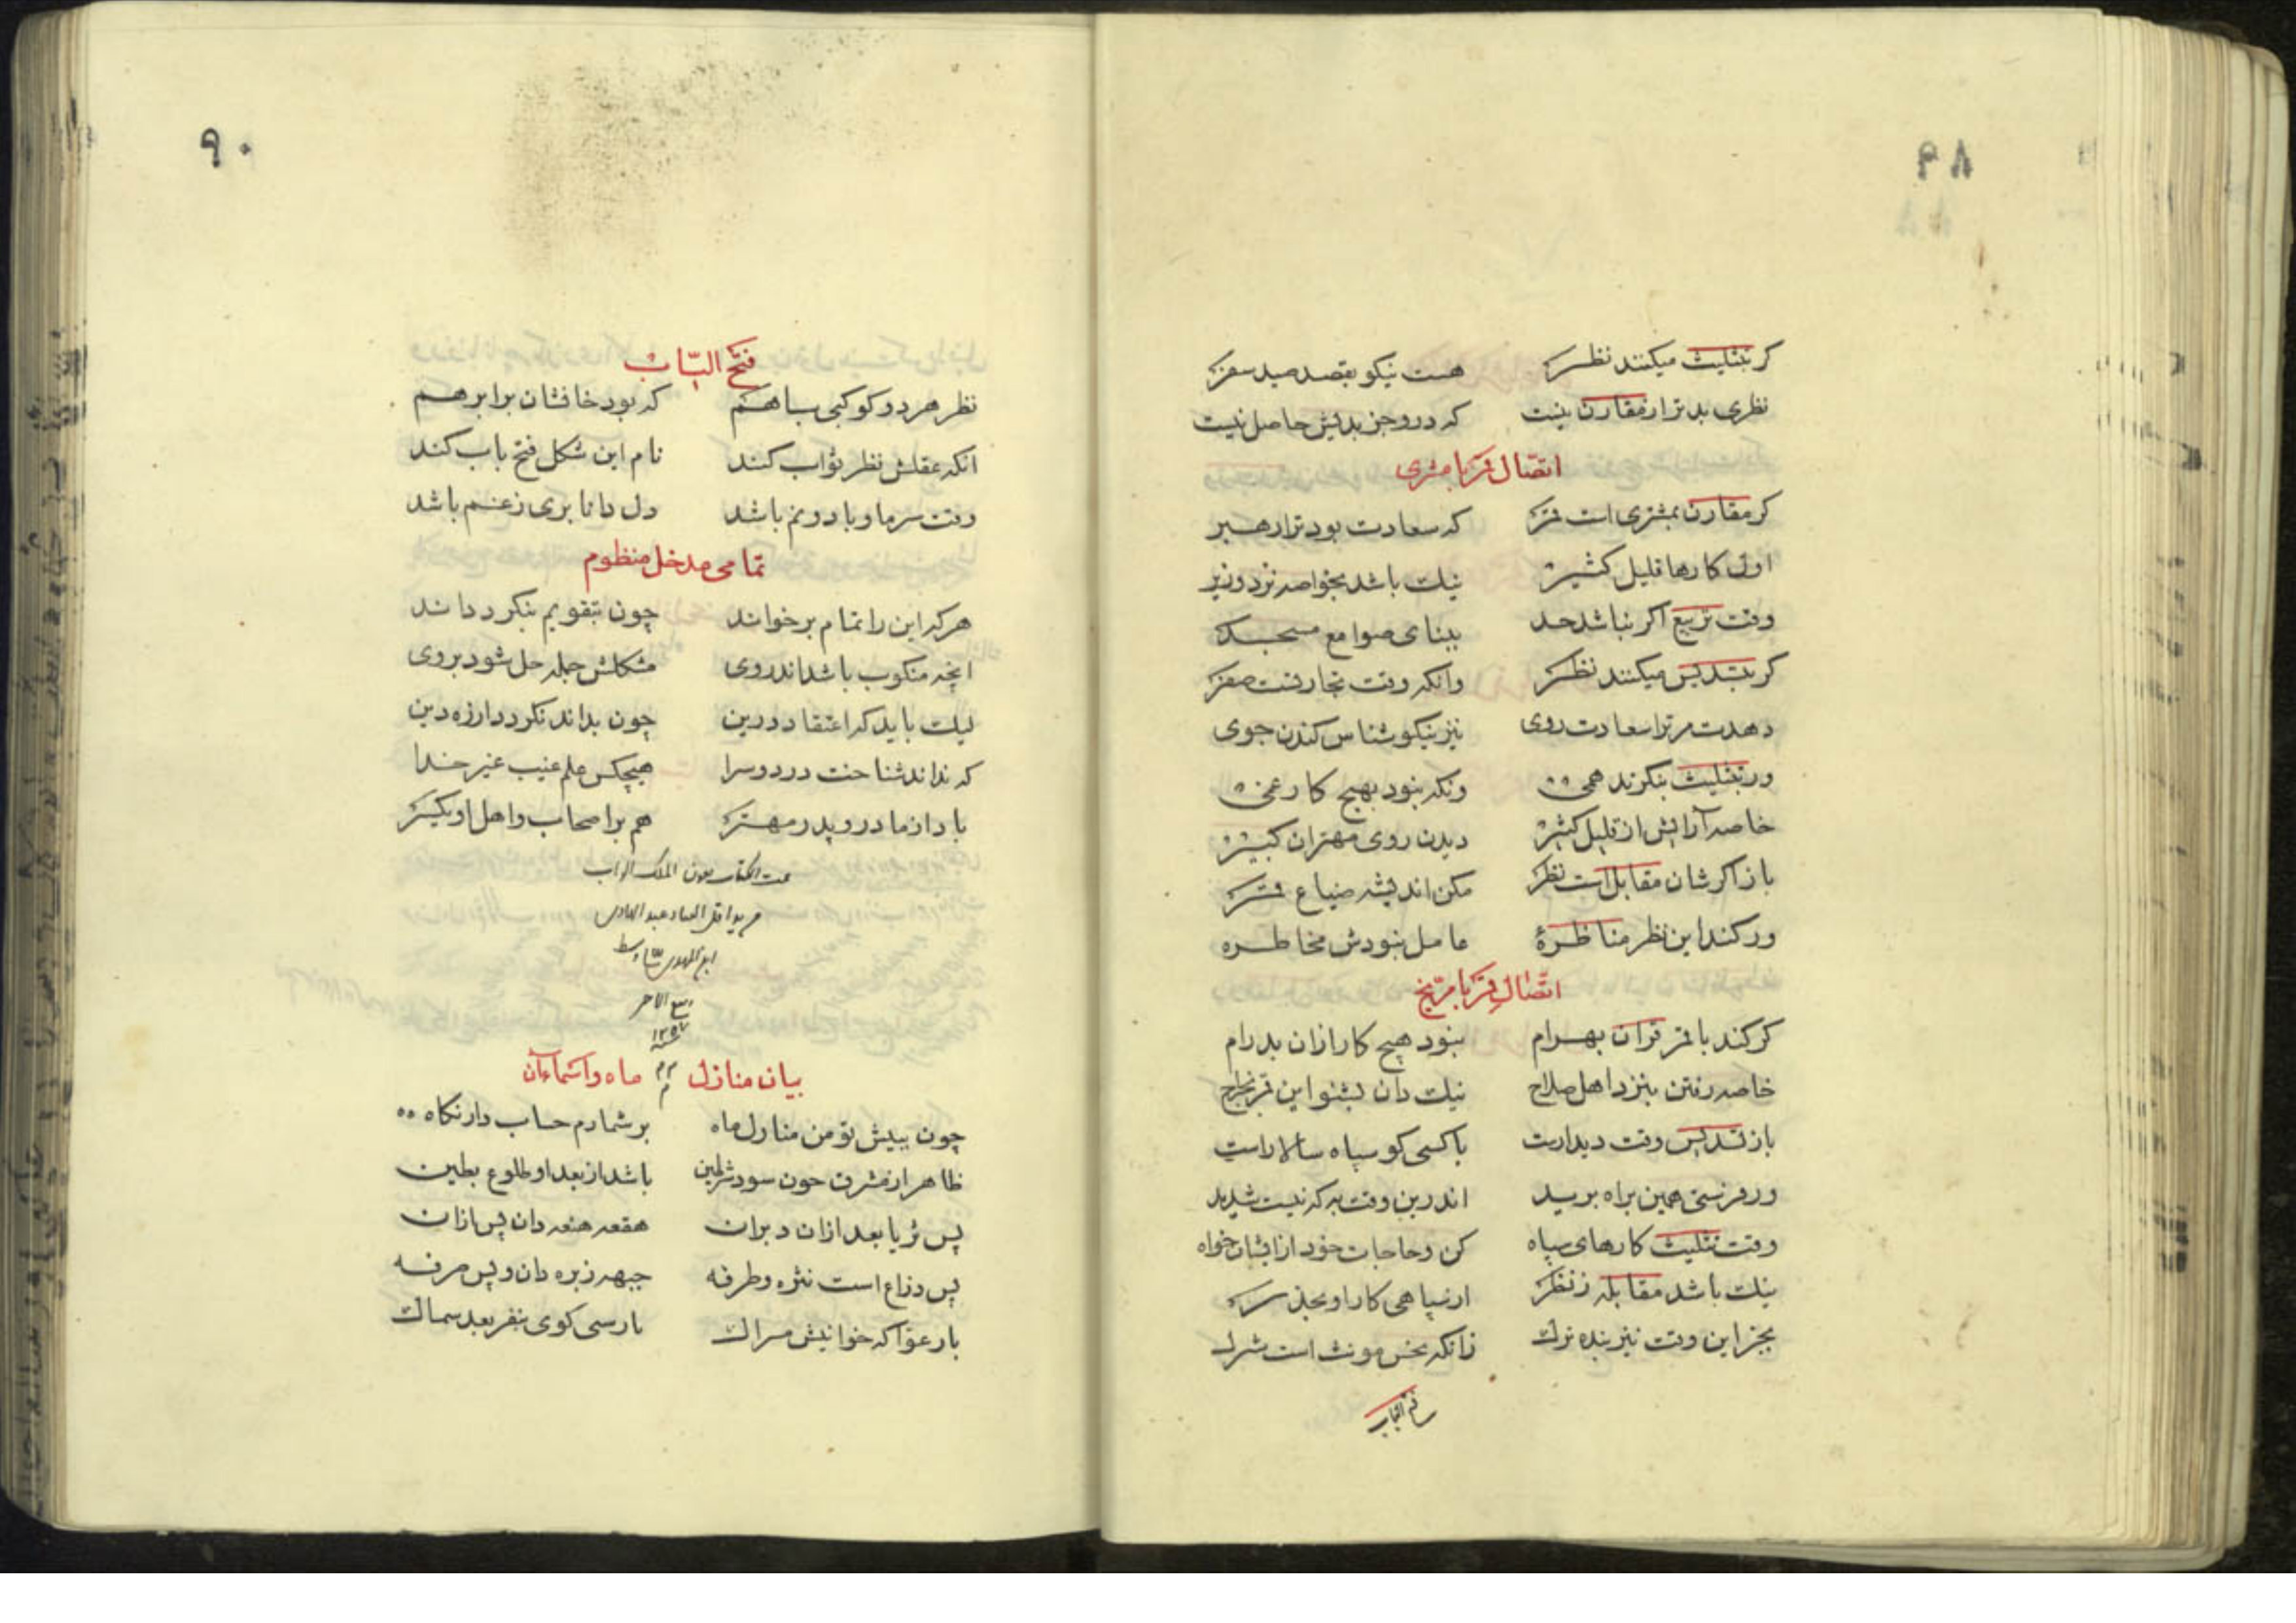 ۸۹
کر بتثلیث میکنند نظر هست نیکو بقصد صید سفر
نظری بدتر از مقارن نیست که درو جز بدیش حاصل نیست
اتّصال قمر با مشتری
کر مقارن بمشتری است قمر که سعادت بود ترا رهبر
اول کارها قلیل کثیر نیک باشد بخواصه نزد وزیر
وقت تربیع اکر نباشد حد ببنای صوامع مسجد
کر بتسدیس میکنند نظر وانکه وقت تجارتست سفر
دهدت مر ترا سعادت روی نیز نیکو شناس کندن جوی
ور بتثلیث بنکرند همی ونکه نبود بهیچ کار غمی
خاصه آرایش از قلیل کثیر دیدن روی مهتران کبیر
باز اکرشان مقابل است نظر مکن اندیشه ضیاع قمر
ور کند این نظر مناظرهٔ عامل نبودش مخاطره
اتّصال قمر با مرّیخ
کر کند با قمر قران بهرام نبود هیچ کار ازان بدرام
خاصه رفتن بنزد اهل صلاح نیک دان بشنو این
باز تسدیس وقت دیدارت باکسی کو سپاه سالار است
ور فرستی همین براه برید اندرین وقت به که نیست شدید
وقت تثلیث کارهای سپاه کن وحاجات خود ازایشان خواه
نیک باشد مقابله ز نظر از سپاهی کار او بجذ سر
بجز این وقت نیز بنده ترک زانکه نحس مونث است شرک
فتح الباب
۹۰
فتح البّاب
نظر هر دو کوکبی با هم که بود خافشان برابر هم
انکه عقلش نظر ثواب کند نام این شکل فتح باب کند
وقت سرما و باد و نم باشد دل دانا بری زغم باشد
تمامی مدخل منظوم
هرکه این را تمام برخواند چون بتقویم بنکرد داند
انچه منکوب باشد اندر وی مشکلش جمله حل شود بروی
لیک باید که اعتقاد درین چون بداند نکردد از ره دین
که نداند شناخت در دو سرا هیچکس علم غیب غیر خدا
باد از مادر و پدر مهتر هم بر اصحاب و اهل او یکسر
تمت الکتاب بعون الملک الوهاب
عبد الهادی
ربیع الاخر
سنه ۱۲۵۷
بیان منازل ماه واسماءآن
چون بپیش تو من منازل ماه برشمارم حساب دار نکاه
ظاهر از مشرق چون سود شرطین باشد از بعد او طلوع بطین
پس ثریا بعد ازان دبران هقعه هنعه دان پس ازان
پس ذراع است نثره وطرفه جبهه زبره دان و پس صرفه
باز عوّا که خوانیش سماک بارسی کوی غفر بعد سماک